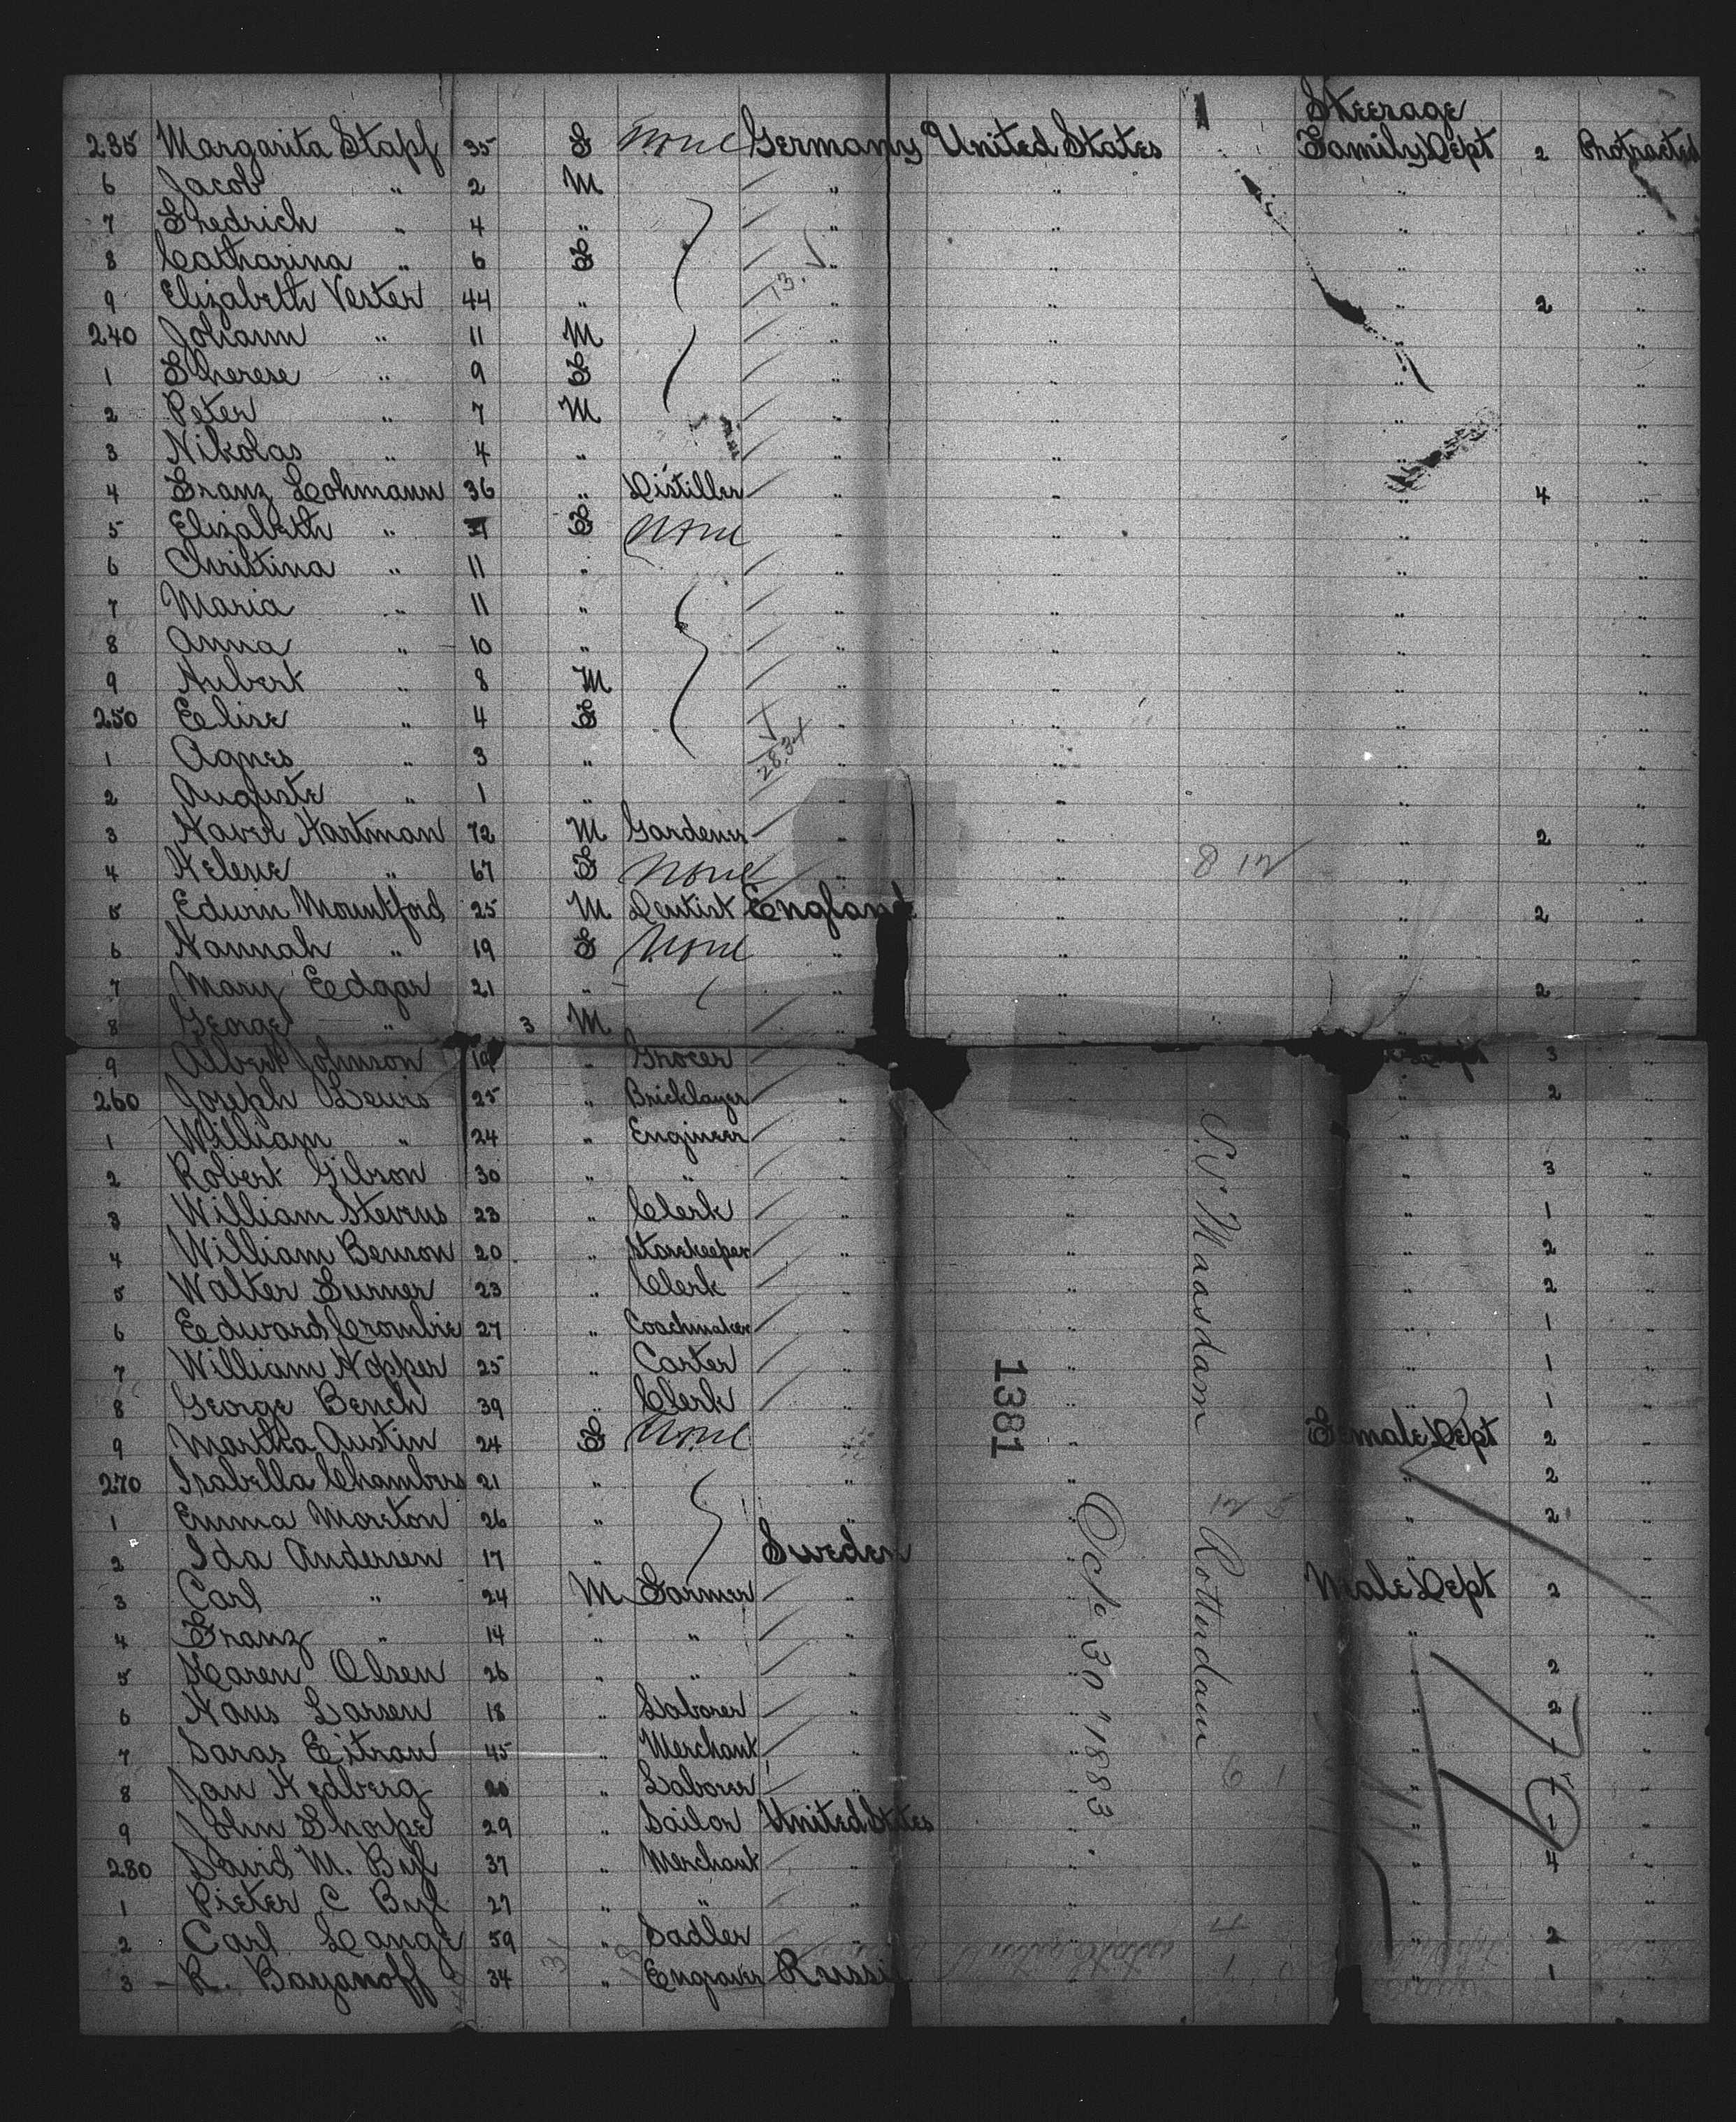 Steerage
235 Margarita Stapf 35 F None Germany United States Family Dept 2 Protracted
6 Jacob " 2 M " " " "
7 Fredrich " 4 " " " " "
8 Catharina " 6 F " " " "
9 Elizabeth Vester 44 " " " " 2 "
240 Johann " 11 M " " " "
1 Therese " 9 F " " " "
2 Peter " 7 M " " " "
3 Nikolas " 4 " " " " "
4 Franz Lohmann 36 " Distiller " " " 4 "
5 Elizabeth " F None " " " "
6 Christina " 11 " " " " "
7 Maria " 11 " " " " "
8 Anna " 10 " " " " "
9 Hubert " 8 M " " " "
250 Elise " 4 F " " " "
1 Agnes " 3 " " " " "
2 Auguste " 1 " " " " "
3 Xaver Hartman 72 M Gardener " " " 2 "
4 Helene " 67 F None " " " "
5 Edwin Mountford 25 M Dentist England " " 2 "
6 Hannah " 19 F None " " " "
7 Mary Edgar 21 " " " " 2 "
8 George " 3 M " " " "
9 Albert Johnson 19 " Grocer " " 3 "
260 Joseph Lewis 25 " Bricklayer " " " 2 "
1 William " 24 " Engineer " " " "
2 Robert Gibson 30 " " " " " 3 "
3 William Stevens 23 " Clerk " " " 1 "
4 William Benson 20 " Storekeeper " " " 2 "
5 Walter Turner 23 " Clerk " " " 2 "
6 Edward Crombie 27 " Coachmaker " " " 1 "
7 William Hopper 25 " Carter " " " 1 "
8 George Bench 39 " Clerk " " " 1 "
9 Martha Austin 24 F None " " Female Dept 2 "
270 Isabella Chambers 21 " " " " 2 "
1 Emma Moreton 26 " " " " 2 "
2 Ida Andersen 17 " Sweden " " "
3 Carl " 24 M Farmer " " Male Dept 2 "
4 Franz " 14 " " " " " "
5 Karen Olsen 26 " " " " " 2 "
6 Hans Larsen 18 " Laborer " " " 2 "
7 Saras Eitran 45 " Merchant " " " "
8 Jan Hedberg 20 " Laborer " " " "
9 John Thorpe 29 " Sailor United States " " 1 "
280 David M. Byl 37 " Merchant " " " 4 "
1 Pieter C Byl 27 " " " " "
2 Carl Lange 59 " Sadler " 2 "
3 R. Bayanoff 34 " Engraver Russia " 1 "
13.
28.34
1381
S.S. Maasdam Rotterdam
Oct. 30" 1883